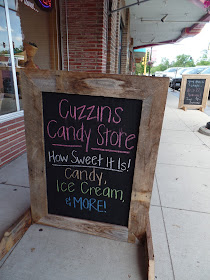 Cuzzins
Candy Store
How Sweet It Is!
Candy,
Ice Cream,
& MORE!